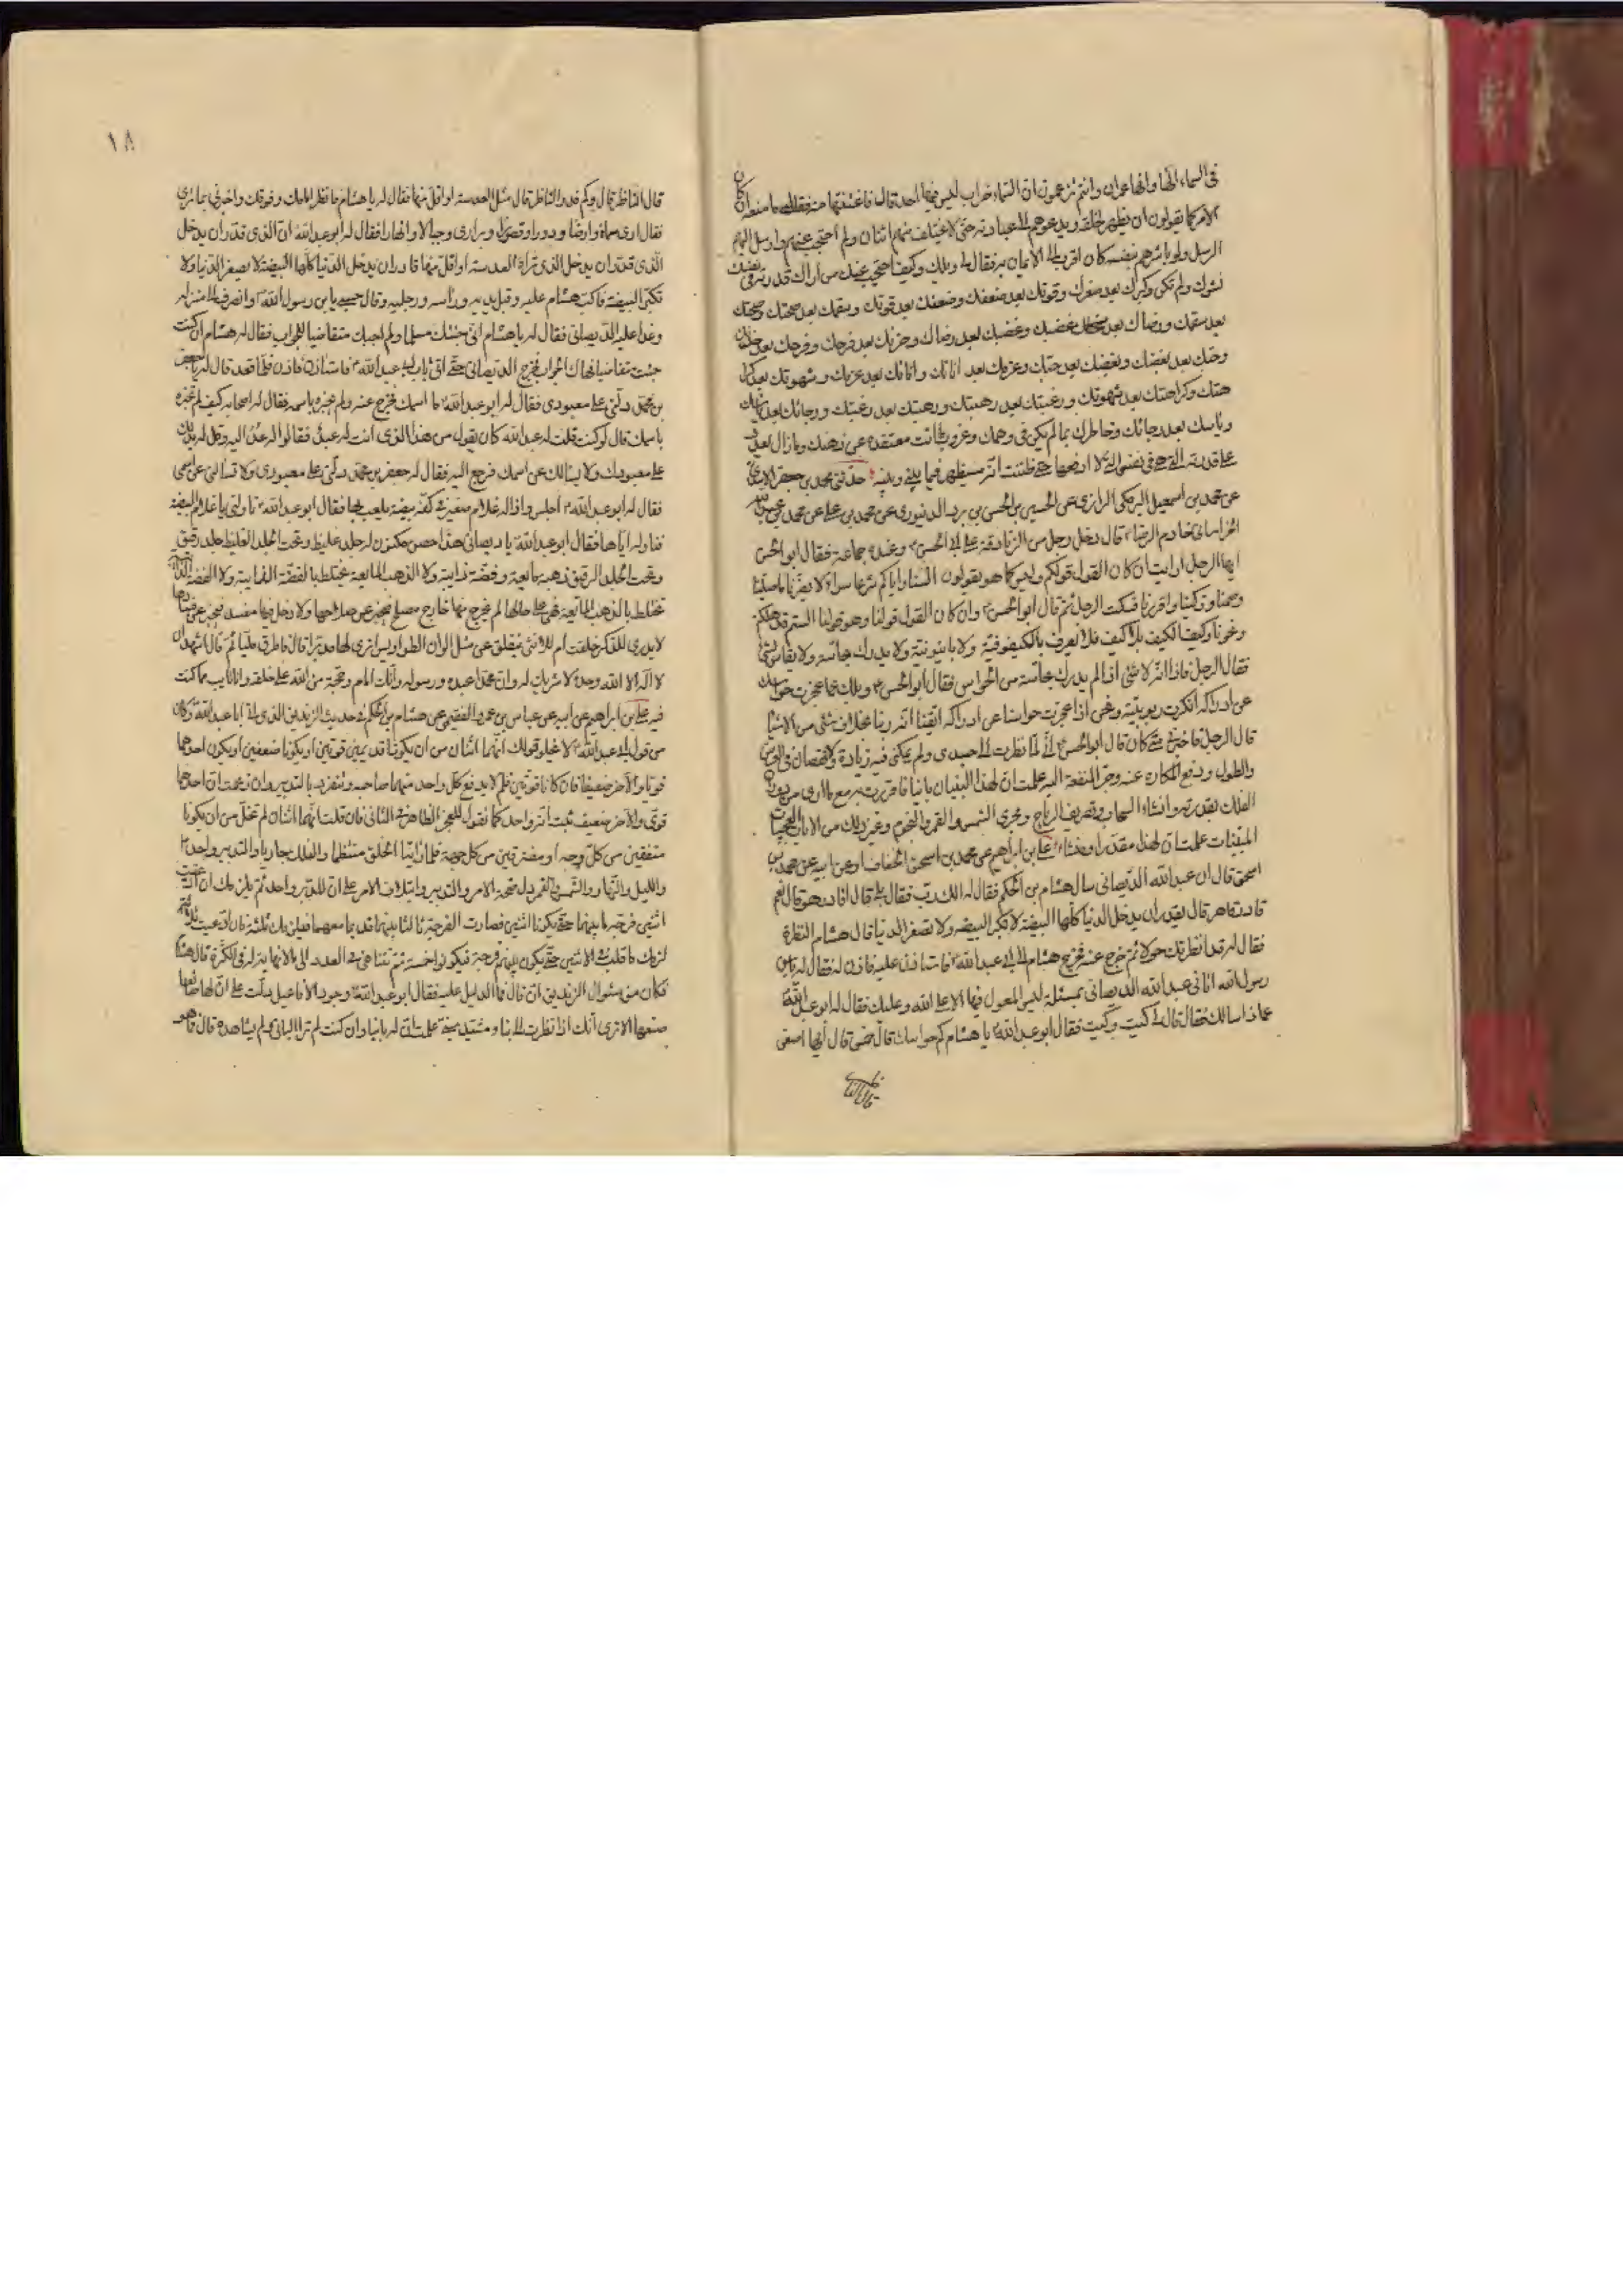 في السماء الها وانها عمران وانتم تزعمون ان السماء خراب ليس فيها احد قال فاغتنمتها منه فقلت له ما منعه ان كان
الامر كما يقولون ان يظهر لخلقه ويدعوهم الى عبادته حتى لا يختلف منهم اثنان ولم احتجب عنهم وارسل اليهم
الرسل ولو باشرهم بنفسه كان اقرب الى الايمان به فقال لي ويلك وكيف احتجب عنك من اراك قدرته في نفسك
نشوك ولم تكن وكبرك بعد صغرك وقوتك بعد ضعفك وضعفك بعد قوتك وسقمك بعد صحتك وصحتك
بعد سقمك ورضاك بعد غضبك وغضبك بعد رضاك وحزنك بعد فرحك وفرحك بعد حزنك
وحبك بعد بغضك وبغضك بعد حبك وعزمك بعد اناتك واناتك بعد عزمك وشهوتك بعد كرا
هتك وكراهتك بعد شهوتك ورغبتك بعد رهبتك ورهبتك بعد رغبتك ورجائك بعد ياسك
وياسك بعد رجائك وخاطرك بما لم يكن في وهمك وعزوب ما انت معتقده عن ذهنك ومازال يعدد
علي قدرته التي هي في نفسي التي لا ادفعها حتى ظننت انه سيظهر فيما بيني وبينه حدثني محمد بن جعفر الاسدي
عن محمد بن اسمعيل البرمكي الرازي عن الحسين بن الحسن بن برد الدينوري عن محمد بن علي عن محمد بن عبد الله
الخراساني خادم الرضا ع قال دخل رجل من الزنادقة على ابي الحسن ع وعنده جماعة فقال ابو الحسن
ايها الرجل ارايت ان كان القول قولكم وليس كما هو يقولون السنا واياكم شرعا سواء لا يضرنا ما صلينا
وصمنا وزكينا واقررنا فسكت الرجل ثم قال ابو الحسن ع وان كان القول قولنا وهو قولنا الستم قد هلكتم
ونجونا وكيف الكيف بلا كيف فلا يعرف بالكيفوفية ولا باينونية ولا يدرك بحاسة ولا يقاس بشئ
فقال الرجل فاذا انه لا شئ اذا لم يدرك بحاسة من الحواس فقال ابو الحسن ع ويلك لما عجزت حواسك
عن ادراكه انكرت ربوبيته ونحن اذا عجزت حواسنا عن ادراكه ايقنا انه ربنا بخلاف شئ من الاشياء
قال الرجل فاخبرني متى كان قال ابو الحسن ع اني لما نظرت الى جسدي ولم يمكني فيه زيادة ولا نقصان في العرض
والطول ودفع المكاره عنه وجر المنفعة اليه علمت ان لهذا البنيان بانيا فاقررت به مع ما ارى من دوران
الفلك بقدرته وانشاء السحاب وتصريف الرياح ومجرى الشمس والقمر والنجوم وغير ذلك من الايات العجيبات
المبينات علمت ان لهذا مقدرا ومنشئا علي بن ابراهيم عن محمد بن اسحق الخفاف او عن ابيه عن محمد بن
اسحق قال ان عبد الله الديصاني سال هشام بن الحكم فقال له الك رب فقال بلى قال اقادر هو قال نعم
قادر قاهر قال يقدر ان يدخل الدنيا كلها البيضة لا تكبر البيضة ولا تصغر الدنيا قال هشام النظرة
فقال له قد انظرتك حولا ثم خرج عنه فركب هشام الى ابي عبد الله ع فاستاذن عليه فاذن له فقال له يابن
رسول الله اتاني عبد الله الديصاني بمسئلة ليس المعول فيها الا على الله وعليك فقال له ابو عبد الله ع
عماذا سالك فقال قال لي كيت وكيت فقال ابو عبد الله ع يا هشام كم حواسك قال خمس قال ايها اصغر
قال الناظر
١٨
قال الناظر قال وكم قدر الناظر قال مثل العدسة او اقل منها فقال له يا هشام فانظر امامك وفوقك واخبرني بما ترى
فقال ارى سماء وارضا ودورا وقصورا وبراري وجبالا وانهارا فقال له ابو عبد الله ع ان الذي قدر ان يدخل
الذي قدر ان يدخل الذي تراه العدسة او اقل منها قادر ان يدخل الدنيا كلها البيضة لا يصغر الدنيا ولا
تكبر البيضة فاكب هشام عليه وقبل يديه وراسه ورجليه وقال حسبي يابن رسول الله ع وانصرف الى منزله
وغدا عليه الديصاني فقال له يا هشام اني جئتك مسلما ولم اجئك متقاضيا للجواب فقال له هشام ان كنت
جئت متقاضيا فهاك الجواب فخرج الديصاني حتى اتى باب ابي عبد الله ع فاستاذن فاذن له فلما قعد قال له يا جعفر
بن محمد دلني على معبودي فقال له ابو عبد الله ع ما اسمك فخرج عنه ولم يخبره باسمه فقال له اصحابه كيف لم تخبره
باسمك قال لو كنت قلت له عبد الله كان يقول من هذا الذي انت له عبد فقالوا له عد اليه وقل له يدلك
على معبودك ولا يسالك عن اسمك فرجع اليه فقال له جعفر بن محمد دلني على معبودي ولا تسالني عن اسمي
فقال له ابو عبد الله ع اجلس واذا له غلام صغير في كفه بيضة يلعب بها فقال ابو عبد الله ع ناولني يا غلام البيضة
فناوله اياها فقال ابو عبد الله ع يا ديصاني هذا حصن مكنون له جلد غليظ وتحت الجلد الغليظ جلد رقيق
وتحت الجلد الرقيق ذهبة مايعة وفضة ذايبة ولا الذهبة المايعة تختلط بالفضة الذايبة ولا الفضة الذايبة
تختلط بالذهبة المايعة فهي على حالها لم يخرج منها خارج مصلح فيخبر عن صلاحها ولا دخل فيها مفسد فيخبر عن فسادها
لا يدرى للذكر خلقت ام للانثى تنفلق عن مثل الوان الطواويس اترى لها مدبرا قال فاطرق مليا ثم قال اشهد ان
لا اله الا الله وحده لا شريك له وان محمدا عبده ورسوله وانك امام وحجة من الله على خلقه وانا تايب مما كنت
فيه علي بن ابراهيم عن ابيه عن عباس بن عمرو الفقيمي عن هشام بن الحكم في حديث الزنديق الذي اتى ابا عبد الله ع وكان
من قول ابي عبد الله ع لا يخلو قولك انهما اثنان من ان يكونا قديمين قويين او يكونا ضعيفين او يكون احدهما
قويا والاخر ضعيفا فان كانا قويين فلم لا يدفع كل واحد منهما صاحبه ويتفرد بالتدبير وان زعمت ان احدهما
قوي والاخر ضعيف ثبت انه واحد كما نقول للعجز الظاهر في الثاني فان قلت انهما اثنان لم تخل من ان يكونا
متفقين من كل وجه او مفترقين من كل جهة فلما راينا الخلق منتظما والفلك جاريا والتدبير واحدا
والليل والنهار والشمس والقمر دل صحة الامر والتدبير وايتلاف الامر على ان المدبر واحد ثم يلزمك ان ادعيت
اثنين فرجة ما بينهما حتى يكونا اثنين فصارت الفرجة ثالثا بينهما قديما معهما فيلزمك ثلثة فان ادعيت ثلثة
لزمك ما قلت في الاثنين حتى يكون بينهم فرجة فيكونوا خمسة ثم تتناهى في العدد الى ما لا نهاية له في الكثرة قال هشام
فكان من سئوال الزنديق ان قال فما الدليل عليه فقال ابو عبد الله ع وجود الافاعيل دلت على ان لها صانعا
صنعها الا ترى انك اذا نظرت الى بناء مشيد مبني علمت ان له بانيا وان كنت لم تر الباني ولم يشاهده قال فما هو